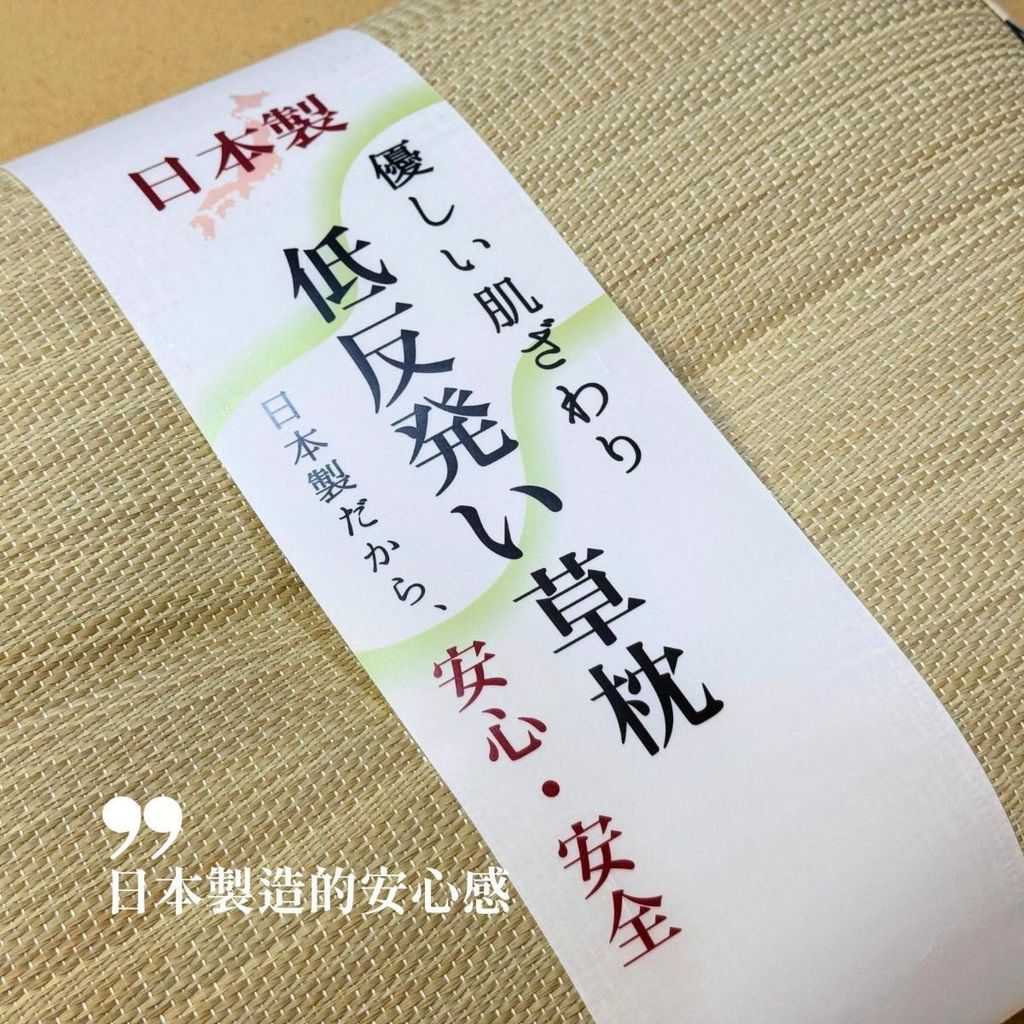 日本製
優しい肌ざわり
低反発い草枕
日本製だから、
安心・安全
日本製造的安心感